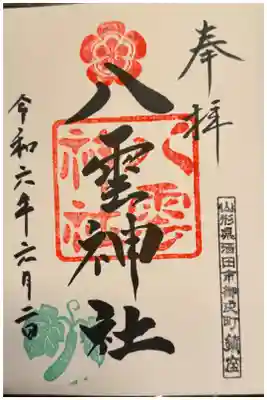 奉拝
山形県酒田市御成町鎮座
八雲神社
八雲
神社
令和六年六月二日